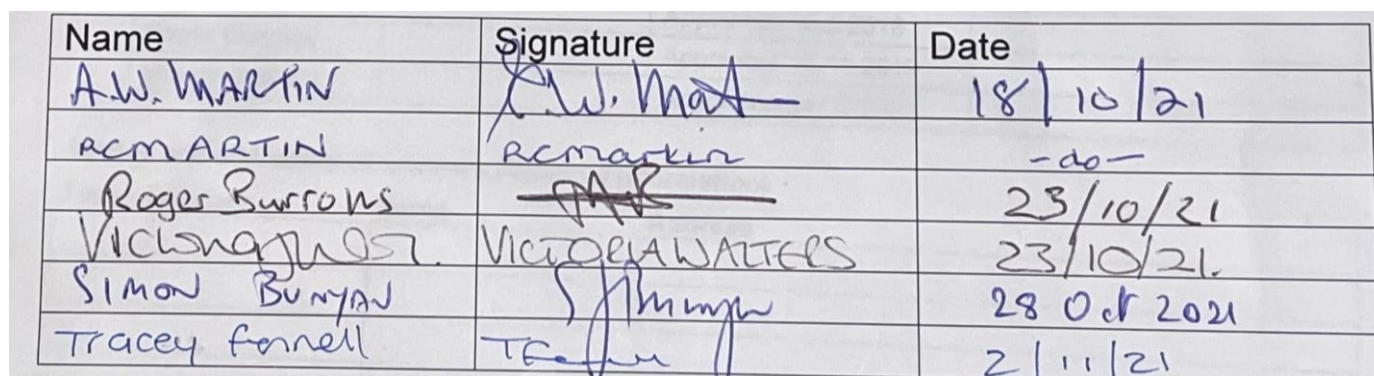 Name Signature Date
A.W. MARTIN A.W. Mart 18/10/21
RCMARTIN Rcmartin -do-
Roger Burrows 23/10/21
Victoria VICTORIA WALTERS 23/10/21.
SIMON BUNYAN 28 Oct 2021
Tracey Fennell 2/11/21